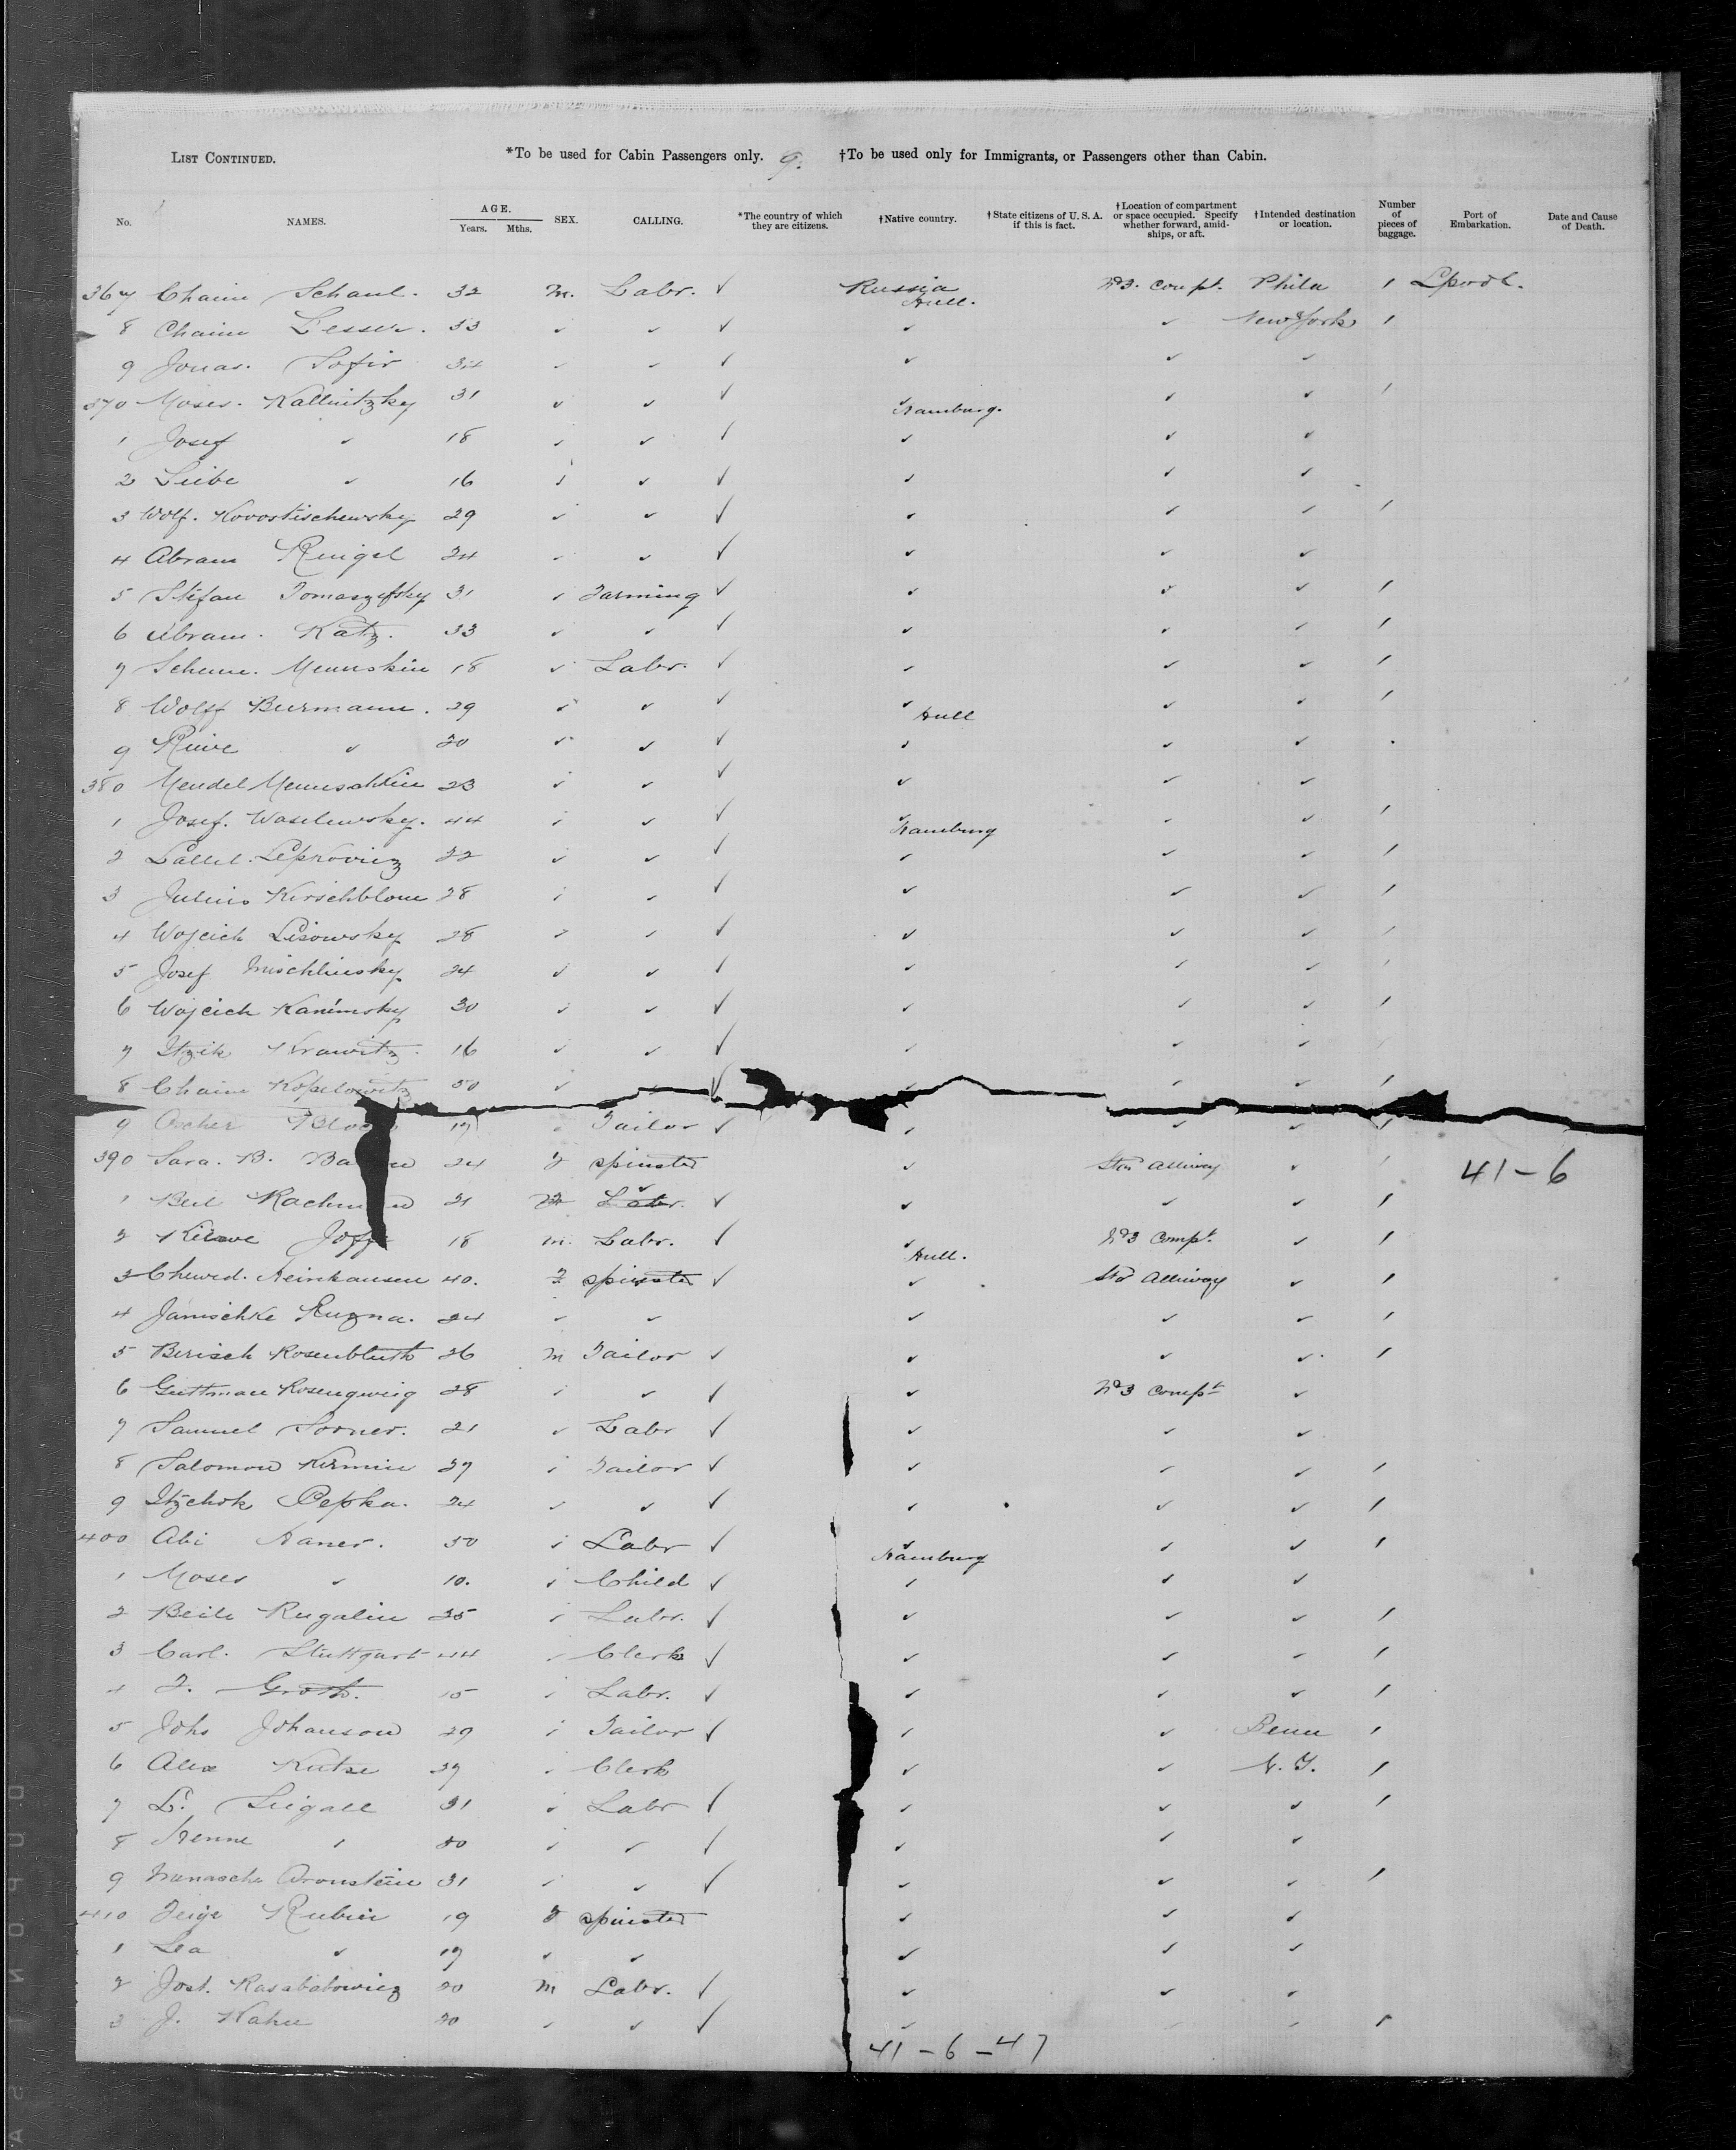 List Continued. *To be used for Cabin Passengers only. 9. †To be used only for Immigrants, or Passengers other than Cabin.
No. NAMES. AGE. Years. Mths. SEX. CALLING. *The country of which they are citizens. †Native country. †State citizens of U. S. A. if this is fact. †Location of compartment or space occupied. Specify whether forward, amidships, or aft. †Intended destination or location. Number of pieces of baggage. Port of Embarkation. Date and Cause of Death.
367 Chaim Schaul. 32 m. Labr. ✓ Russia No 3. Compt. Phila 1 Lpool.
Hull.
8 Chaim Lesser. 33 ✓ ✓ ✓ ✓ ✓ New York 1
9 Jonas. Sofir 34 ✓ ✓ ✓ ✓ ✓ ✓
370 Moses. Kallintzky 31 ✓ ✓ ✓ ✓ ✓ ✓ 1
Hamburg.
1 Josef ✓ 18 ✓ ✓ ✓ ✓ ✓ ✓
2 Leibe ✓ 16 ✓ ✓ ✓ ✓ ✓ ✓
3 Wolf. Kovostischewsky 29 ✓ ✓ ✓ ✓ ✓ ✓ 1
4 Abram Ringel 24 ✓ ✓ ✓ ✓ ✓ ✓
5 Stefan Tomaszefsky 31 ✓ Farming ✓ ✓ ✓ ✓ 1
6 Abram. Katz. 33 ✓ ✓ ✓ ✓ ✓ ✓ 1
7 Mennskin 18 ✓ Labr. ✓ ✓ ✓ ✓ 1
8 Wolff Burmann. 29 ✓ ✓ ✓ ✓ ✓ ✓ 1
Hull
9 Riwe ✓ 20 ✓ ✓ ✓ ✓ ✓ ✓
380 Mendel 23 ✓ ✓ ✓ ✓ ✓ ✓
1 Josef. Waselewsky. 44 ✓ ✓ ✓ ✓ ✓ ✓ 1
Hamburg
2 Lallel. Lepkovicz 22 ✓ ✓ ✓ ✓ ✓ ✓ 1
3 Julius Kirschblom 28 ✓ ✓ ✓ ✓ ✓ ✓ 1
4 Wojcich Lisowsky 28 ✓ ✓ ✓ ✓ ✓ ✓ 1
5 Josef Mischlinsky 24 ✓ ✓ ✓ ✓ ✓ ✓ 1
6 Wojcich Kaminsky 30 ✓ ✓ ✓ ✓ ✓ ✓ 1
7 Itzik Krawitz. 16 ✓ ✓ ✓ ✓ ✓ ✓ 1
8 Chaim Kopelowitz 50 ✓ ✓ ✓ ✓ ✓ ✓ 1
9 Ascher 17 ✓ Tailor ✓ ✓ ✓ ✓ 1
390 Sara. B. 24 F spinster ✓ Std Alliway ✓ 1 41-6
1 Beil 21 Labr. ✓ ✓ ✓ ✓ ✓ 1
2 18 m. Labr. ✓ ✓ No 3 Compt. ✓ 1
Hull.
3 Heinhausen 40. F spinster ✓ ✓ Std Alliway ✓ 1
4 Janischke Ruzna. 24 ✓ ✓ ✓ ✓ ✓ 1
5 Berisch Rosenbluth 26 m Tailor ✓ ✓ ✓ ✓ 1
6 Guttman Rosengweig 28 ✓ ✓ ✓ ✓ No 3 Compt ✓
7 Samuel Sorner. 21 ✓ Labr ✓ ✓ ✓ ✓
8 Salomon Kirmin 27 ✓ Tailor ✓ ✓ ✓ ✓ 1
9 Itzchok Pepka. 24 ✓ ✓ ✓ ✓ ✓ ✓ 1
400 Abi Haner. 50 ✓ Labr ✓ ✓ ✓ ✓ 1
Hamburg
1 Moses ✓ 10. ✓ Child ✓ ✓ ✓ ✓
2 Beile Rugalin 25 ✓ Labr. ✓ ✓ ✓ ✓ 1
3 Carl. Stuttgart 44 ✓ Clerk ✓ ✓ ✓ ✓ 1
4 F. Groth. 15 ✓ Labr. ✓ ✓ ✓ ✓ 1
5 Johs Johanson 29 ✓ Tailor ✓ ✓ ✓ Penn 1
6 Alex Kutze 27 ✓ Clerk ✓ ✓ N.Y. 1
7 L. Seigall 31 ✓ Labr ✓ ✓ ✓ ✓ 1
8 Henne ✓ ✓ ✓ ✓ ✓ ✓ ✓
9 Manasche Aronstein 31 ✓ ✓ ✓ ✓ ✓ ✓ 1
410 Feige Rubin 19 F spinster ✓ ✓ ✓
1 Lea ✓ 17 ✓ ✓ ✓ ✓ ✓
2 Jost. Rasabatowicz 20 m Labr. ✓ ✓ ✓ ✓
3 J. Kahn 20 ✓ ✓ ✓ ✓ ✓ ✓ 1
41-6-47